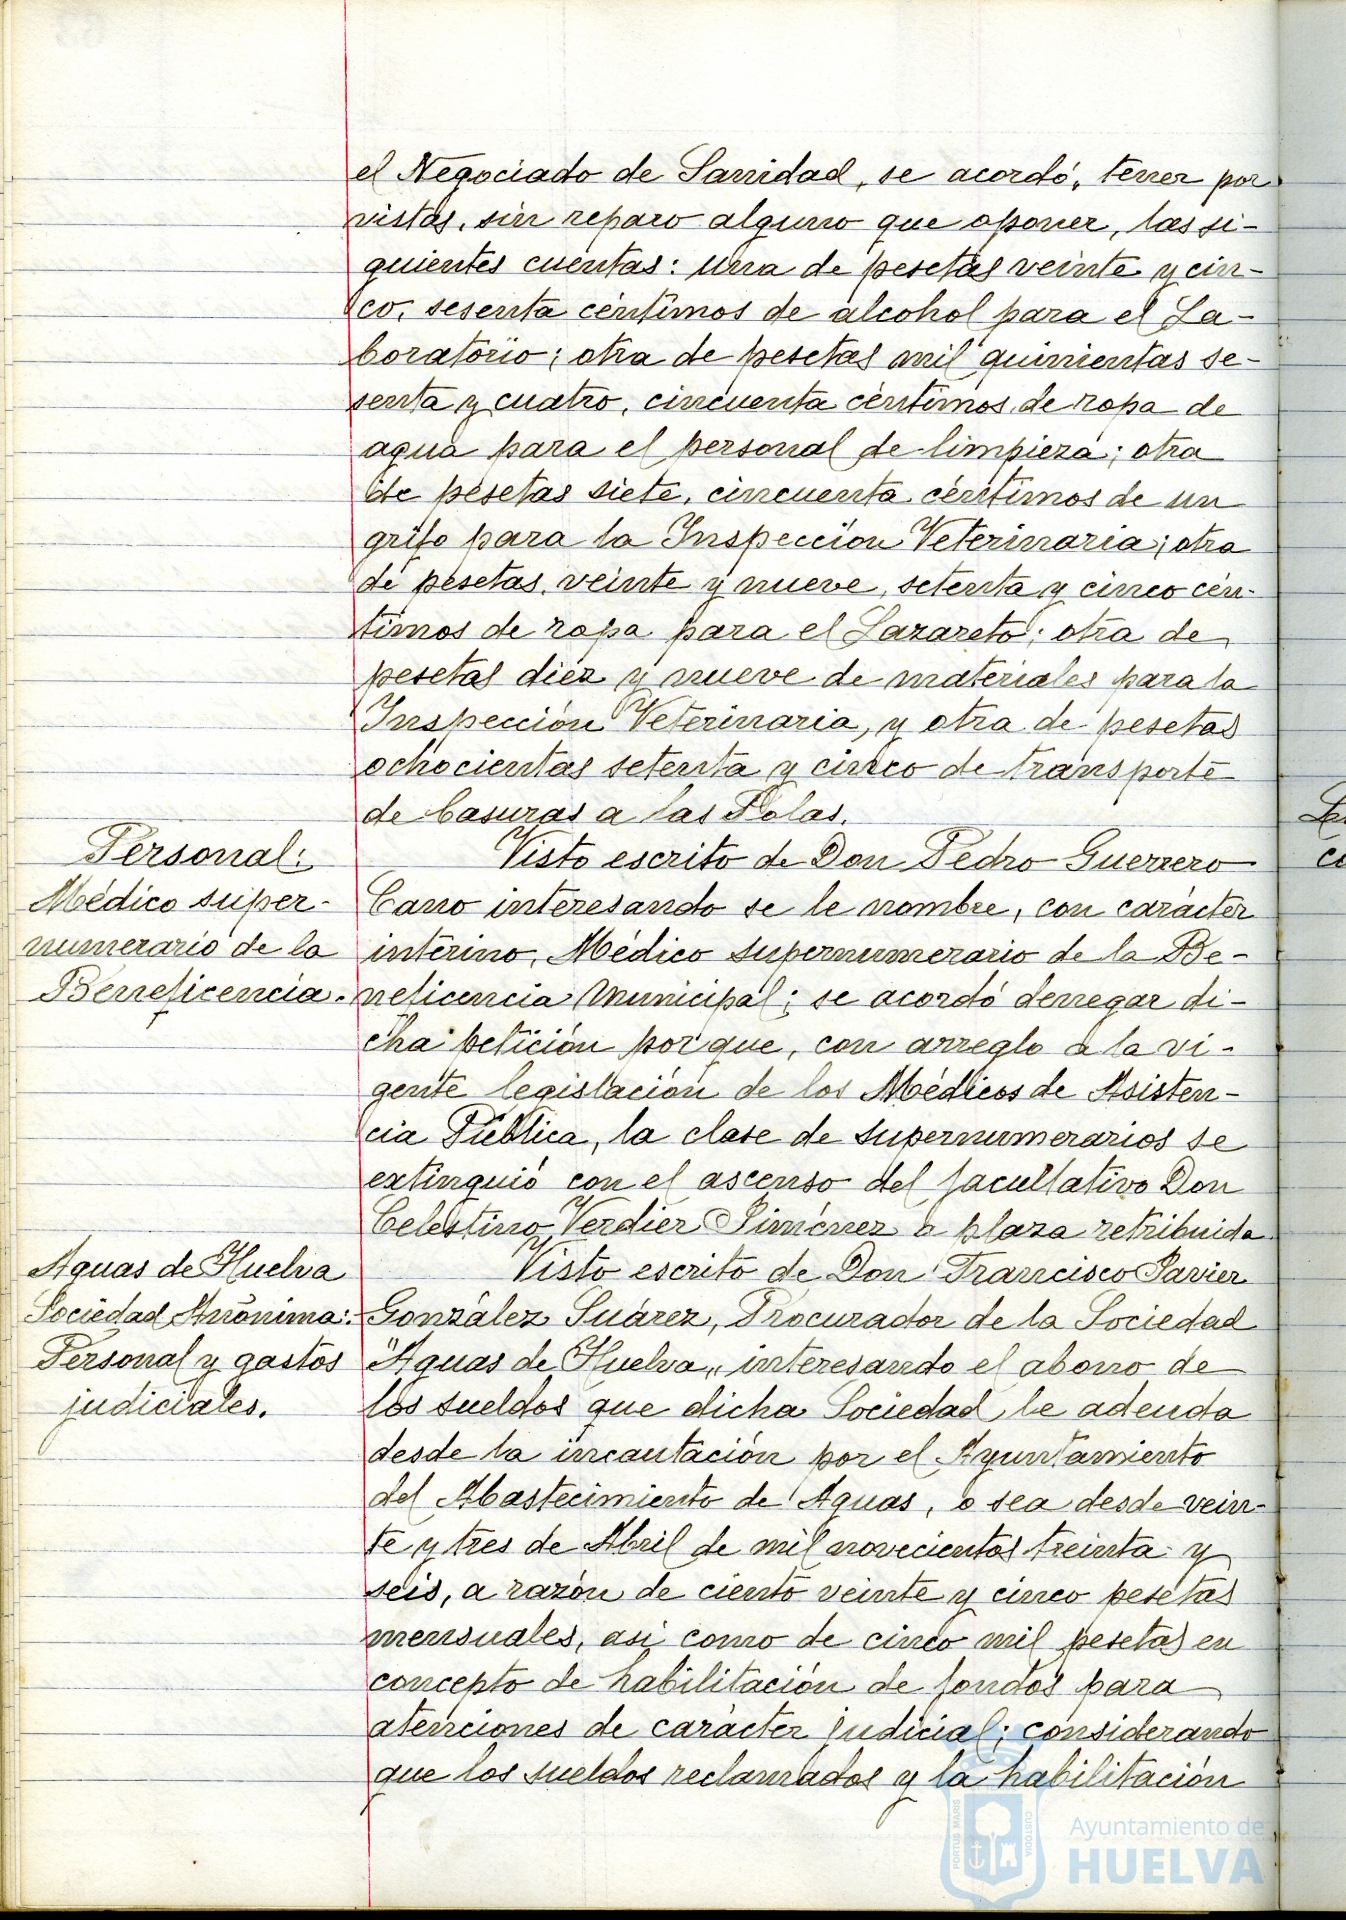 el Negociado de Sanidad, se acordó, tener por
vistas, sin reparo alguno que oponer, las si-
guientes cuentas: una de pesetas veinte y cin-
co, sesenta céntimos de alcohol para el La-
boratorio; otra de pesetas mil quinientas se-
senta y cuatro, cincuenta céntimos de ropa de
agua para el personal de limpieza; otra
de pesetas siete, cincuenta céntimos de un
grifo para la Inspección Veterinaria; otra
de pesetas veinte y nueve, setenta y cinco cén-
timos de ropa para el Lazareto; otra de
pesetas diez y nueve de materiales para la
Inspección Veterinaria, y otra de pesetas
ochocientas setenta y cinco de transporte
de basuras a las Polas.
Personal:
Médico super-
numerario de la
Beneficencia.
Visto escrito de Don Pedro Guerrero
Cano interesando se le nombre, con carácter
interino, Médico supernumerario de la Be-
neficencia Municipal; se acordó denegar di-
cha petición porque, con arreglo a la vi-
gente legislación de los Médicos de Asisten-
cia Pública, la clase de supernumerarios se
extinguió con el ascenso del facultativo Don
Celestino Verdier Jiménez a plaza retribuida
Aguas de Huelva
Sociedad Anónima:
Personal y gastos
judiciales.
Visto escrito de Don Francisco Javier
González Suárez, Procurador de la Sociedad
"Aguas de Huelva" interesando el abono de
los sueldos que dicha Sociedad le adeuda
desde la incautación por el Ayuntamiento
del Abastecimiento de Aguas, o sea desde vein-
te y tres de Abril de mil novecientos treinta y
seis, a razón de ciento veinte y cinco pesetas
mensuales, asi como de cinco mil pesetas en
concepto de habilitación de fondos para
atenciones de carácter judicial; considerando
que los sueldos reclamados y la habilitación
PORTUS MARIS
CUSTODIA
Ayuntamiento de
HUELVA